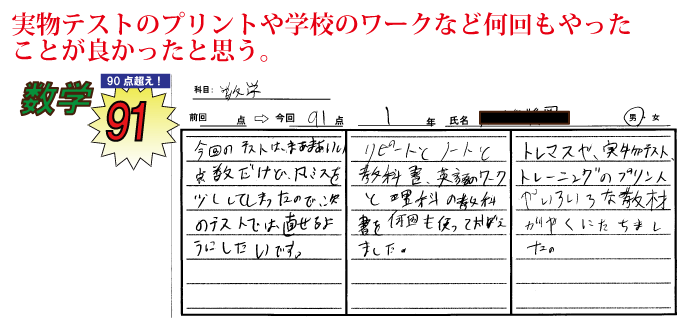 実物テストのプリントや学校のワークなど何回もやった
ことが良かったと思う。
90点超え！
数学
91
科目： 数学
前回 点 ⇨ 今回 91 点 1 年 氏名 男・女
今回のテストは、まあまあいい
点数だけど、凡ミスを
少ししてしまったので、次
のテストでは、直せるよ
うにしたいです。
リピートと ノートと
教科書、英語のワーク
と理科の教科
書を何回も使っておぼえ
ました。
トレマスや、実物テスト、
トレーニングのプリント
やいろいろな教材
がやくにたちまし
た。